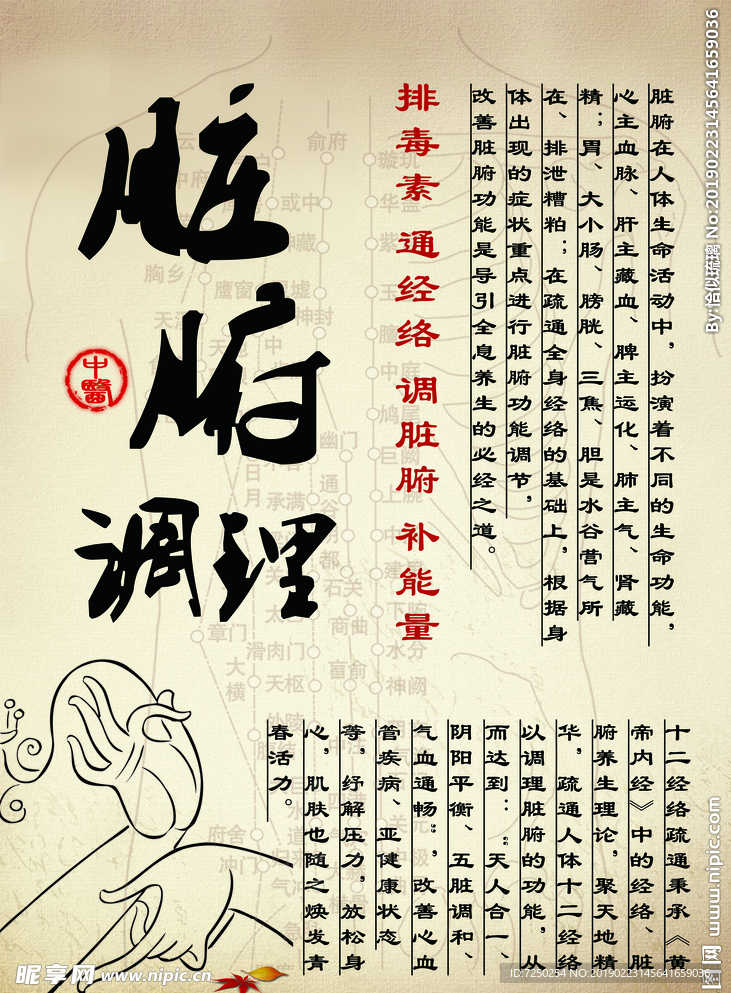 脏腑
调理
中醫
排毒素 通经络 调脏腑 补能量
脏腑在人体生命活动中，扮演着不同的生命功能，
心主血脉、肝主藏血、脾主运化、肺主气、肾藏
精；胃、大小肠、膀胱、三焦、胆是水谷营气所
在、排泄糟粕；在疏通全身经络的基础上，根据身
体出现的症状重点进行脏腑功能调节，
改善脏腑功能是导引全息养生的必经之道。
十二经络疏通秉承《黄
帝内经》中的经络、脏
腑养生理论，聚天地精
华，疏通人体十二经络
以调理脏腑的功能，从
而达到：“天人合一、
阴阳平衡、五脏调和、
气血通畅”，改善心血
管疾病、亚健康状态
等，纾解压力，放松身
心，肌肤也随之焕发青
春活力。
俞府
璇玑
或中
华盖
胸乡
鹰窗
神封
中庭
鸠尾
幽门
巨阙
日月
承满
通谷
上脘
石关
建里
下脘
商曲
章门
滑肉门
水分
大横
天枢
肓俞
神阙
府舍
冲门
气冲
By:恰似琉璃 No:20190223145641659036
www.nipic.com
昵图网
昵享网 www.nipic.cn
ID:7250254 NO:20190223145641659036